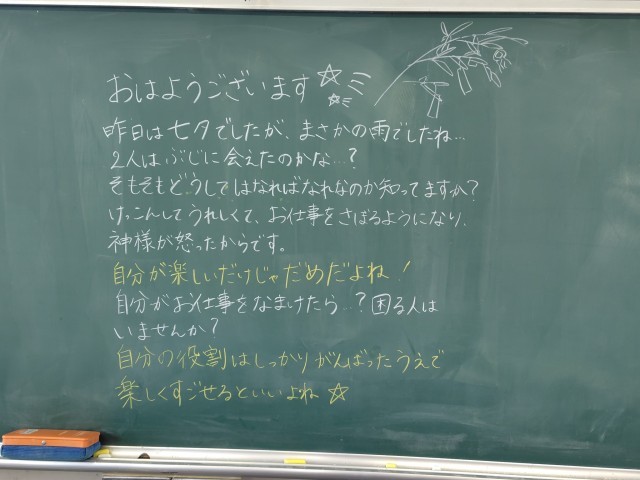 おはようございます☆
昨日は七夕でしたが、まさかの雨でしたね…
2人はぶじに会えたのかな…?
そもそもどうしてはなればなれなのか知ってますか?
けっこんしてうれしくて、お仕事をさぼるようになり、
神様が怒ったからです。
自分が楽しいだけじゃだめだよね!
自分がお仕事をなまけたら…?困る人は
いませんか?
自分の役割はしっかりがんばったうえで
楽しくすごせるといいよね☆